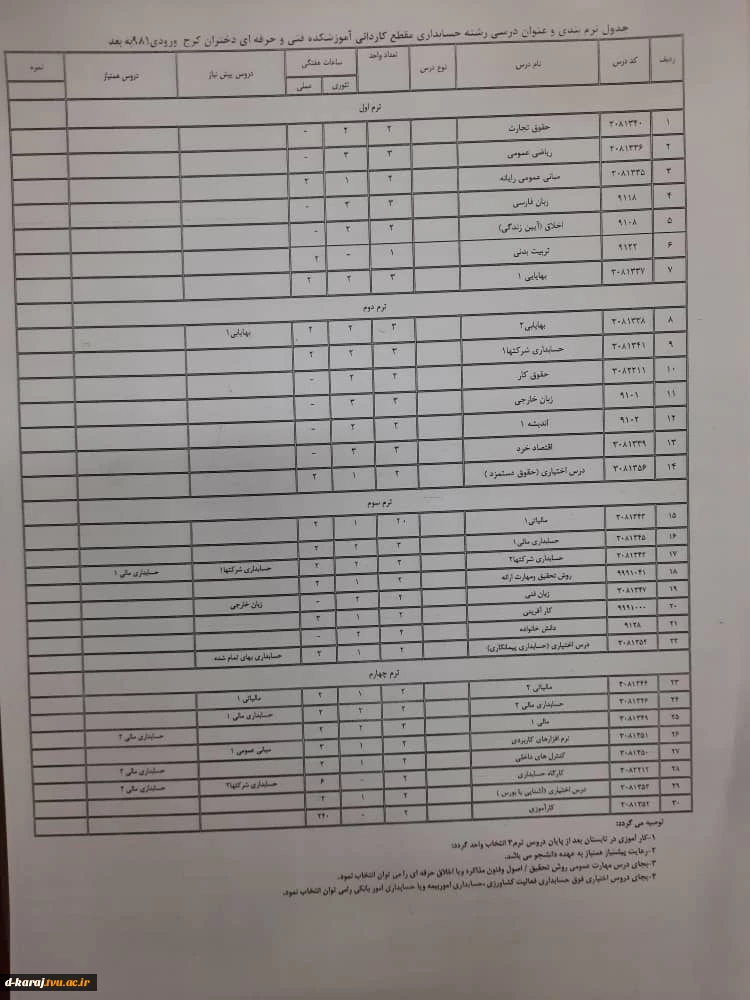 جدول ترم بندی و عنوان درسی رشته حسابداری مقطع کاردانی آموزشکده فنی و حرفه ای دختران کرج ورودی ۹۸۱ به بعد
ردیف کد درس نام درس نوع درس تعداد واحد ساعات هفتگی دروس پیش نیاز دروس همنیاز نمره
تئوری عملی
ترم اول
۱ ۳۰۸۱۳۴۰ حقوق تجارت ۲ ۲ -
۲ ۳۰۸۱۳۳۶ ریاضی عمومی ۳ ۳ -
۳ ۳۰۸۱۳۳۵ مبانی عمومی رایانه ۲ ۱ ۲
۴ ۹۱۱۸ زبان فارسی ۳ ۳ -
۵ ۹۱۰۸ اخلاق (آیین زندگی) ۲ ۲ -
۶ ۹۱۲۲ تربیت بدنی ۱ - ۲
۷ ۳۰۸۱۳۳۷ بهایابی ۱ ۳ ۲ ۲
ترم دوم
۸ ۳۰۸۱۳۳۸ بهایابی۲ ۳ ۲ ۲ بهایابی۱
۹ ۳۰۸۱۳۴۱ حسابداری شرکتها۱ ۳ ۲ ۲
۱۰ ۳۰۸۲۲۱۱ حقوق کار ۲ ۲ -
۱۱ ۹۱۰۱ زبان خارجی ۳ ۳ -
۱۲ ۹۱۰۲ اندیشه ۱ ۲ ۲ -
۱۳ ۳۰۸۱۳۳۹ اقتصاد خرد ۳ ۳ -
۱۴ ۳۰۸۱۳۵۶ درس اختیاری (حقوق دستمزد ) ۲ ۱ ۲
ترم سوم
۱۵ ۳۰۸۱۳۴۳ مالیاتی۱ ۲۰ ۱ ۲
۱۶ ۳۰۸۱۳۴۵ حسابداری مالی۱ ۳ ۲ ۲
۱۷ ۳۰۸۱۳۴۲ حسابداری شرکتها۲ ۳ ۲ ۲ حسابداری شرکتها۱ حسابداری مالی ۱
۱۸ ۹۹۹۱۰۴۱ روش تحقیق ومهارت ارائه ۲ ۱ ۲
۱۹ ۳۰۸۱۳۴۷ زبان فنی ۲ ۲ - زبان خارجی
۲۰ ۹۹۹۱۰۰۰ کار آفرینی ۲ ۱ ۳
۲۱ ۹۱۲۸ دانش خانواده ۲ ۲ -
۲۲ ۳۰۸۱۳۵۴ درس اختیاری (حسابداری پیمانکاری) ۲ ۱ ۳ حسابداری بهای تمام شده
ترم چهارم
۲۳ ۳۰۸۱۳۴۴ مالیاتی ۲ ۲ ۱ ۲ مالیاتی ۱
۲۴ ۳۰۸۱۳۴۶ حسابداری مالی ۲ ۳ ۲ ۲ حسابداری مالی ۱
۲۵ ۳۰۸۱۳۴۹ مالی ۱ ۳ ۲ ۲ حسابداری مالی ۲
۲۶ ۳۰۸۱۳۵۱ نرم افزارهای کاربردی ۲ ۱ ۳ مبانی عمومی ۱
۲۷ ۳۰۸۱۳۵۰ کنترل های داخلی ۲ ۱ ۲ حسابداری مالی ۲
۲۸ ۳۰۸۲۲۱۲ کارگاه حسابداری ۲ - ۶ حسابداری شرکتها۲ حسابداری مالی ۲
۲۹ ۳۰۸۱۳۵۲ درس اختیاری (آشنایی با بورس ) ۲ ۱ ۲
۳۰ ۳۰۸۱۳۵۲ کارآموزی ۲ - ۲۴۰
توصیه می گردد:
۱-کار آموزی در تابستان بعد از پایان دروس ترم۲ انتخاب واحد گردد:
۲-رعایت پیشنیاز همنیاز به عهده دانشجو می باشد.
۳-بجای درس مهارت عمومی روش تحقیق / اصول وفنون مذاکره ویا اخلاق حرفه ای را می توان انتخاب نمود.
۴-بجای دروس اختیاری فوق حسابداری فعالیت کشاورزی ،حسابداری اموربیمه ویا حسابداری امور بانکی رامی توان انتخاب نمود.
d-karaj.tvu.ac.ir